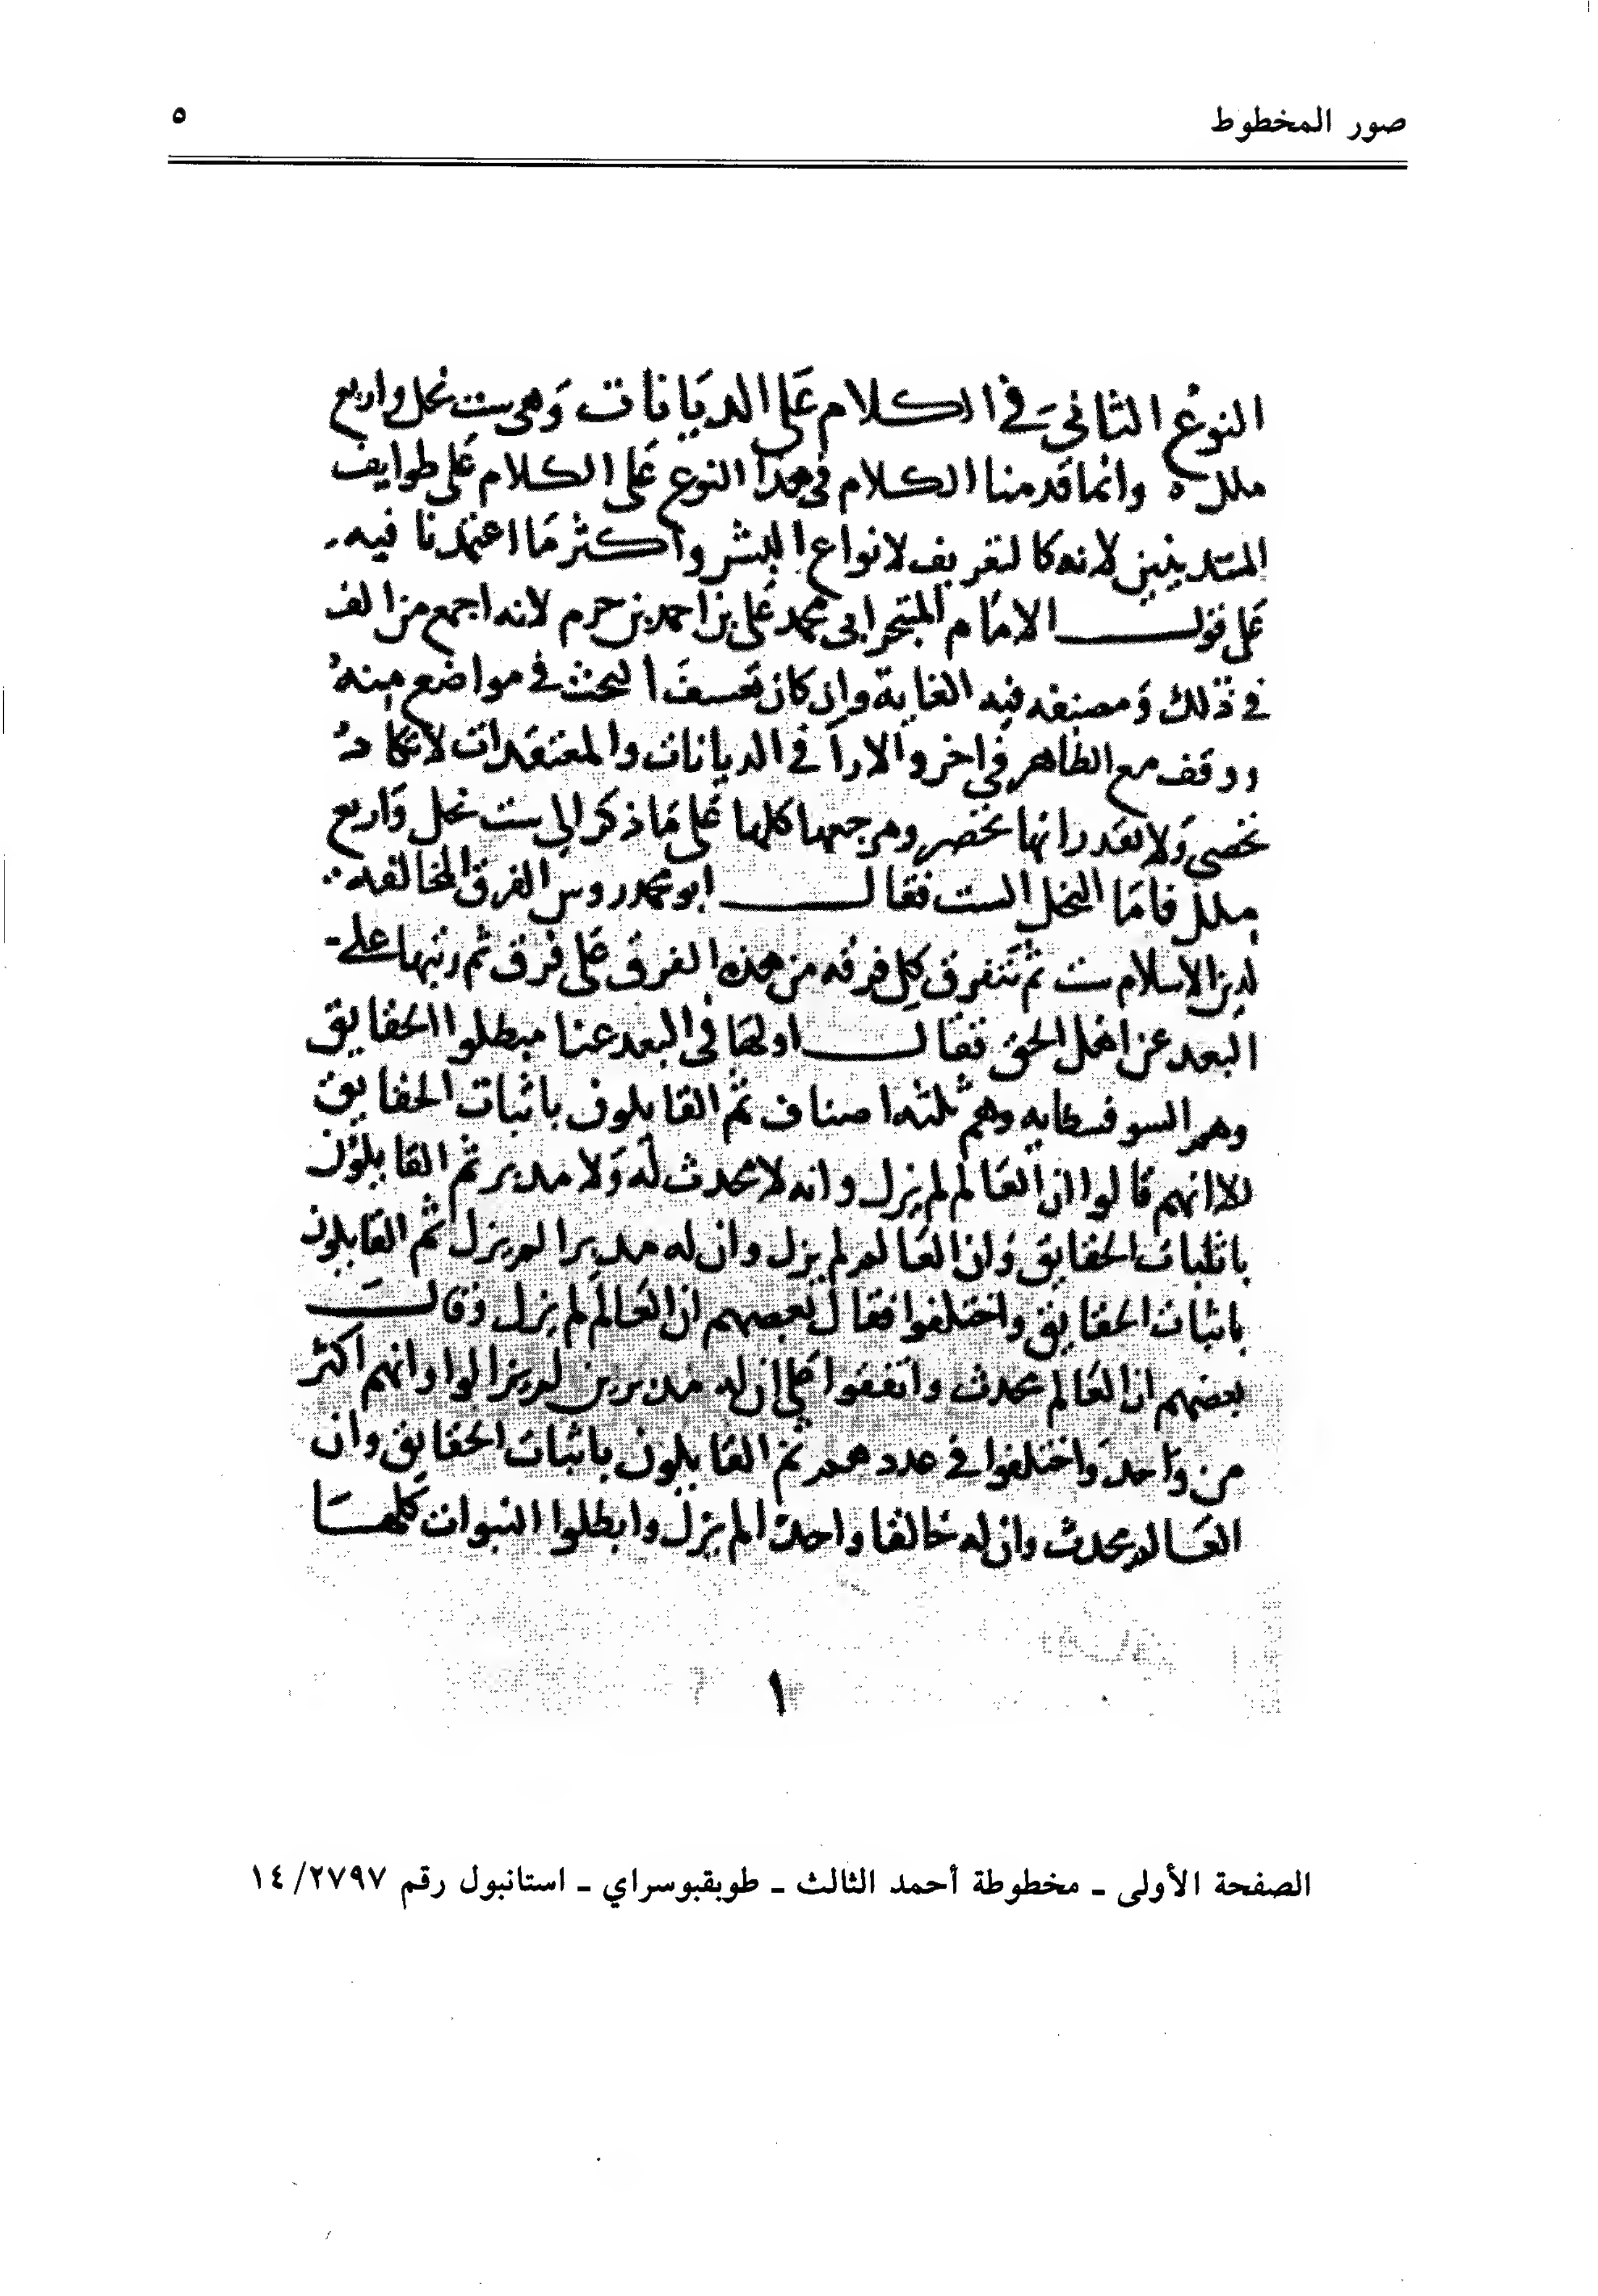 صور المخطوط
٥
النوع الثاني في الكلام على الديانات وهي ست نحل واربع
ملل ه وانما قدمنا الكلام في هذا النوع على الكلام على طوايف
المتدينين لانه كالتعريف لانواع البشر واكثر ما اعتمدنا فيه
على قول الامام المتبحر ابي محمد علي بن احمد بن حزم لانه اجمع من الف
في ذلك ومصنفه فيه الغاية وان كان تعسف البحث في مواضع منه
ووقف مع الظاهر في اخر والارا في الديانات والمعتقدات لا تكاد
تحصى ولا نقدر انها تحصر ومرجعها كلها على ما ذكر الى ست نحل واربع
ملل فاما النحل الست فقال ابو محمد روس الفرق المخالفه
لدين الاسلام ست ثم تتفرق كل فرقه من هذه الفرق على فرق ثم رتبها على
البعد عن اهل الحق فقال اولها في البعد عنا مبطلوا الحقايق
وهم السوفسطايه وهم ثلثه اصناف ثم القايلون باثبات الحقايق
الا انهم قالوا ان العالم لم يزل وانه لا محدث له ولا مدبر ثم القايلون
باثبات الحقايق وان العالم لم يزل وان له مدبرا لم يزل ثم القايلون
باثبات الحقايق واختلفوا فقال بعضهم ان العالم لم يزل وقال
بعضهم ان العالم محدث واتفقوا على ان له مدبرين لم يزالوا وانهم اكثر
من واحد واختلفوا في عددهم ثم القايلون باثبات الحقايق وان
العالم محدث وان له خالقا واحدا لم يزل وابطلوا النبوات كلها
١
الصفحة الأولى ـ مخطوطة أحمد الثالث ـ طوبقبوسراي ـ استانبول رقم ٢٧٩٧/١٤